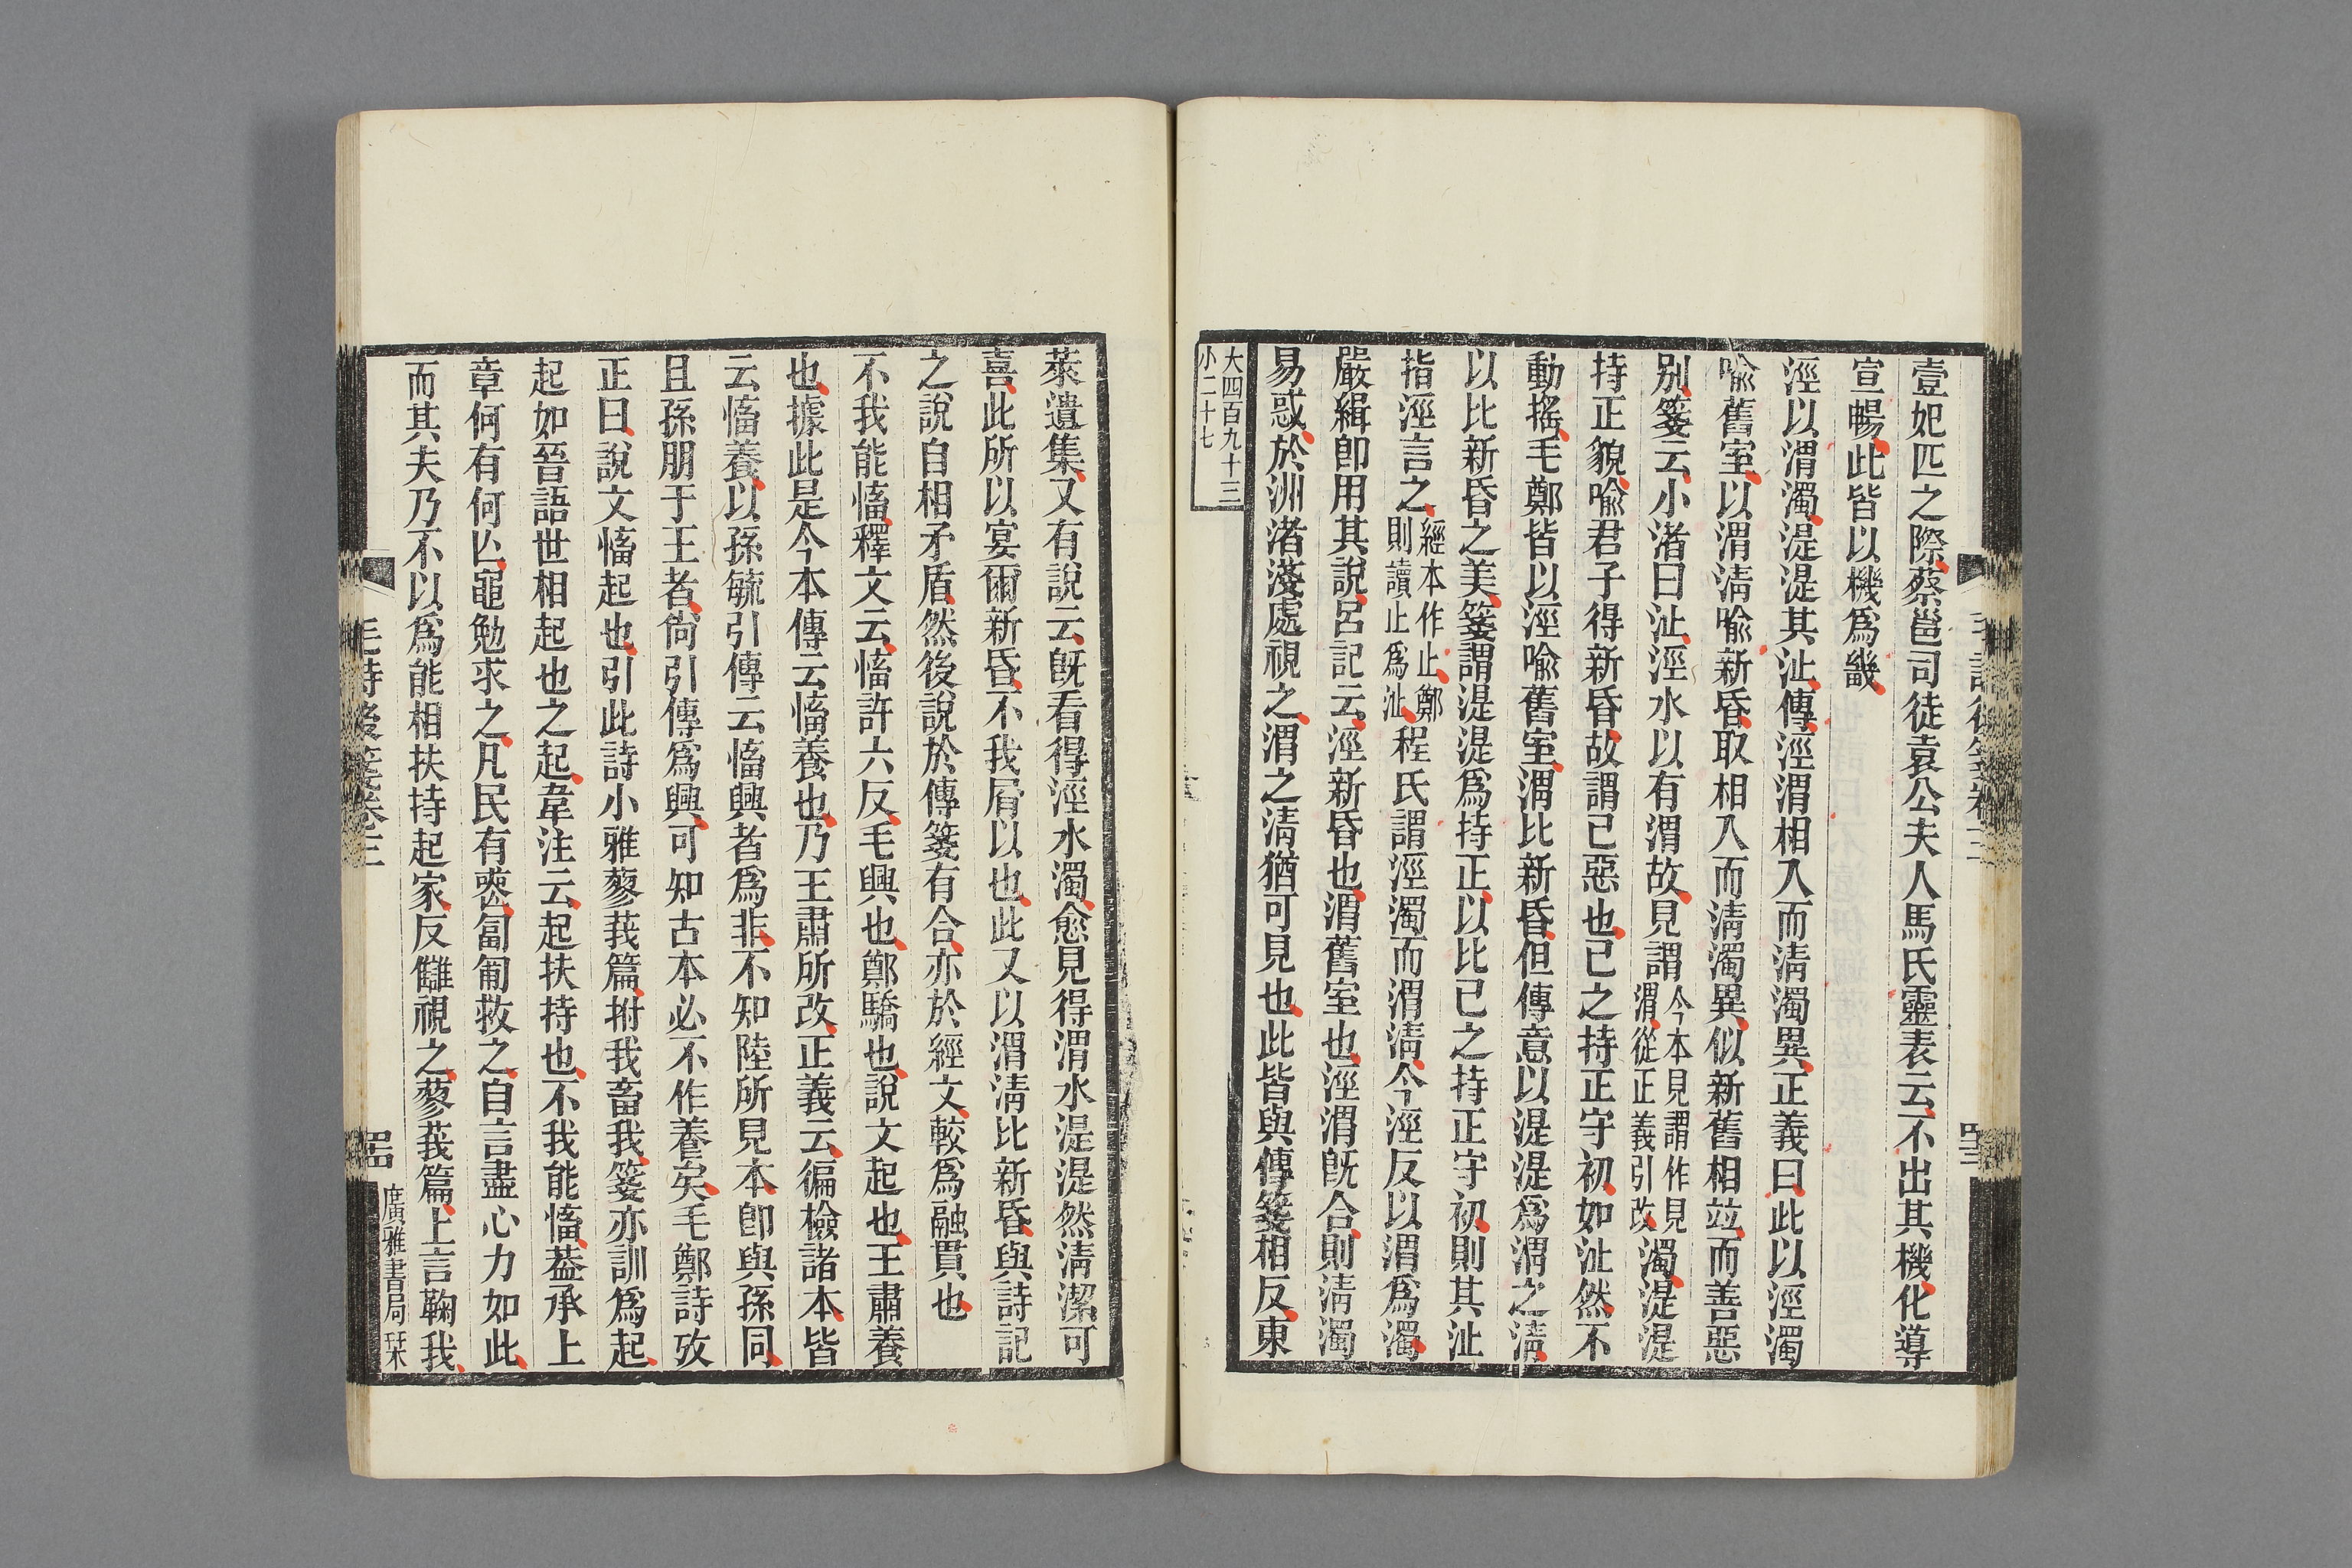 壹妃匹之際蔡邕司徒袁公夫人馬氏靈表云不出其機化導
宣暢此皆以機爲畿
涇以渭濁湜湜其沚傳涇渭相入而淸濁異正義曰此以涇濁
喩舊室以渭淸喩新昏取相入而淸濁異似新舊相竝而善惡
別箋云小渚曰沚涇水以有渭故見謂今本見謂作見渭從正義引改濁湜湜
持正貌喩君子得新昏故謂已惡也已之持正守初如沚然不
動搖毛鄭皆以涇喩舊室渭比新昏但傳意以湜湜爲渭之淸
以比新昏之美箋謂湜湜爲持正以比已之持正守初則其沚
指涇言之經本作止鄭則讀止爲沚程氏謂涇濁而渭淸今涇反以渭爲濁
嚴緝卽用其說呂記云涇新昏也渭舊室也涇渭旣合則淸濁
易惑於洲渚淺處視之渭之淸猶可見也此皆與傳箋相反東
大四百九十三
小二十七
萊遺集又有說云旣看得涇水濁愈見得渭水湜湜然淸潔可
喜此所以宴爾新昏不我屑以也此又以渭淸比新昏與詩記
之說自相矛盾然後說於傳箋有合亦於經文較爲融貫也
不我能慉釋文云慉許六反毛興也鄭驕也說文起也王肅養
也據此是今本傳云慉養也乃王肅所改正義云徧檢諸本皆
云慉養以孫毓引傳云慉興者爲非不知陸所見本卽與孫同
且孫朋于王者尙引傳爲興可知古本必不作養矣毛鄭詩攷
正曰說文慉起也引此詩小雅蓼莪篇拊我畜我箋亦訓爲起
起如晉語世相起也之起韋注云起扶持也不我能慉葢承上
章何有何亾黽勉求之凡民有喪匍匐救之自言盡心力如此
而其夫乃不以爲能相扶持起家反讎視之蓼莪篇上言鞠我
毛詩後箋卷三
廣雅書局栞